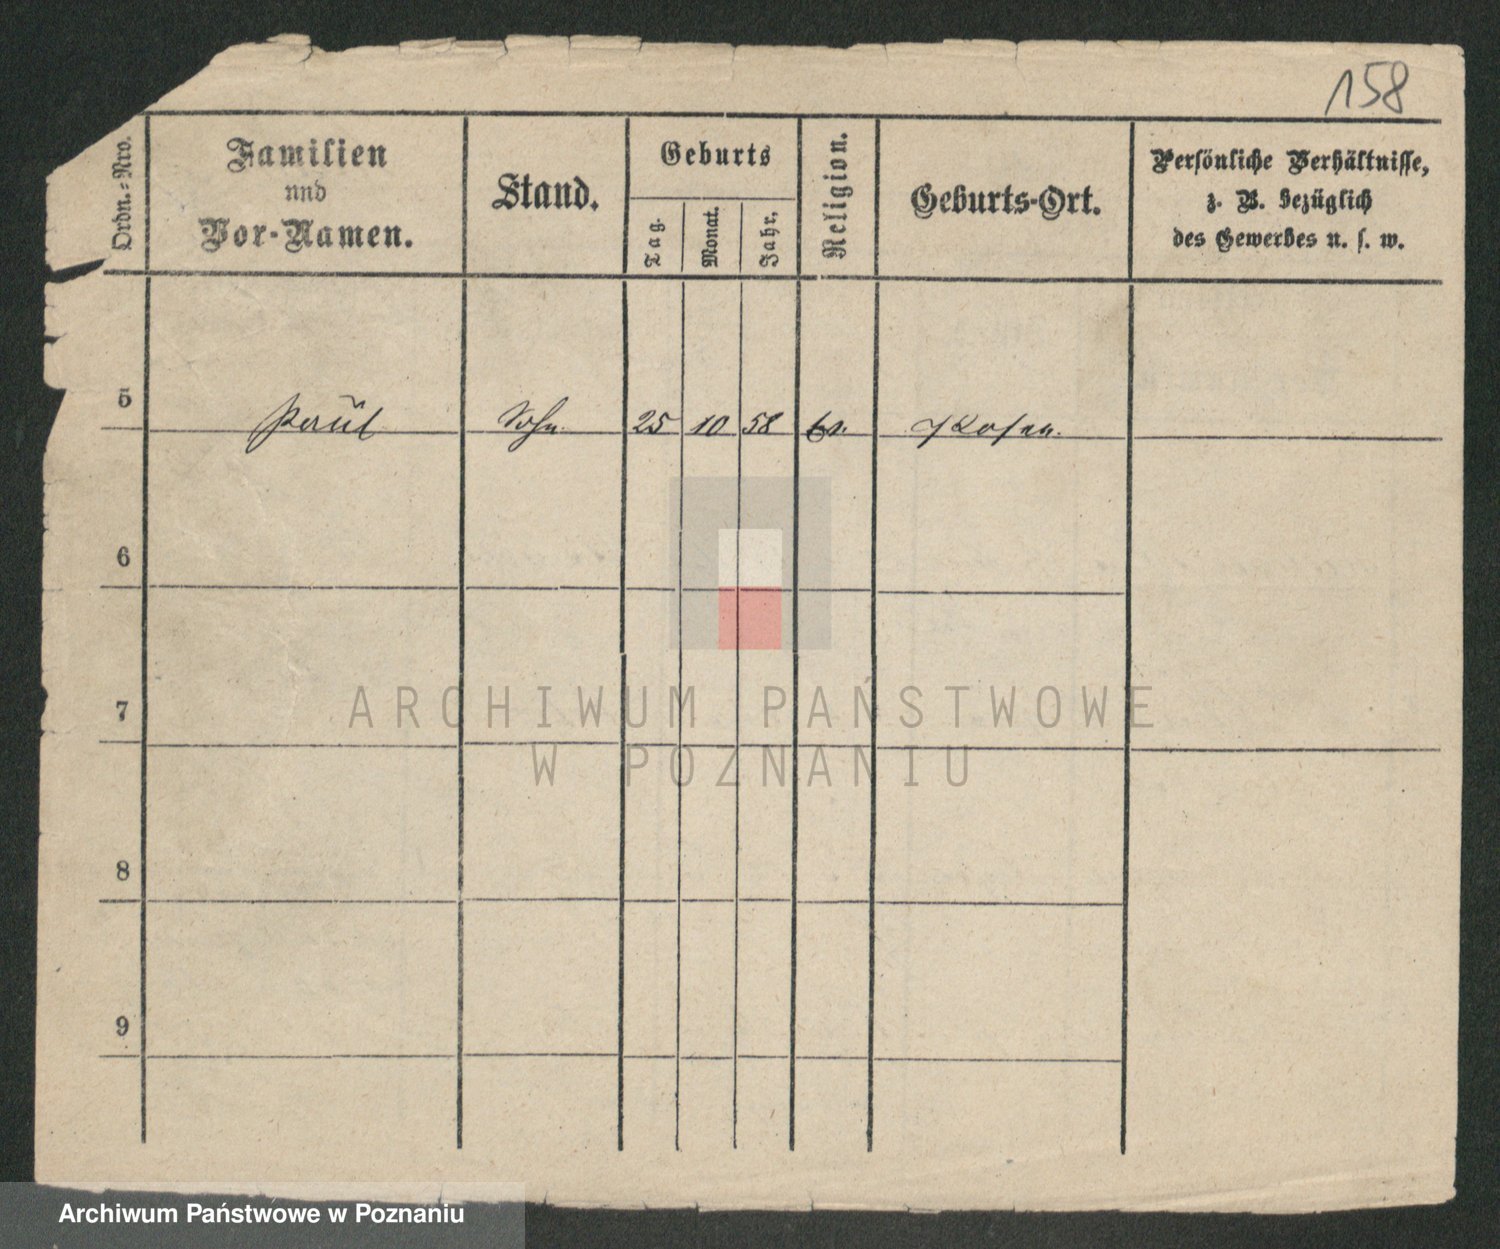 158
Ordn.=Nro.
Familien
und
Vor-Namen.
Stand.
Geburts
Tag.
Monat.
Jahr.
Religion.
Geburts-Ort.
Persönliche Verhältnisse,
z. B. bezüglich
des Gewerbes u. s. w.
5 Paul Sohn 25 10 58 Posen.
6
7
ARCHIWUM PAŃSTWOWE
W POZNANIU
8
9
Archiwum Państwowe w Poznaniu